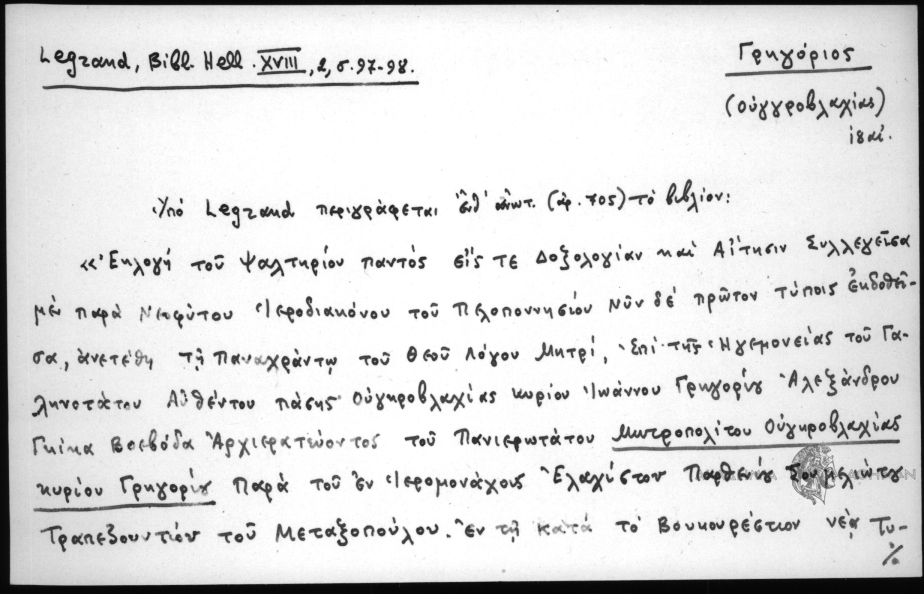 Legrand, Bibl. Hell. XVIII, 2, σ. 97-98.
Γρηγόριος
(Οὐγγροβλαχίας)
ιηαἰ.
Ὑπό Legrand περιγράφεται ἐνθ' ἀνωτ. (ἀρ. 705) τό βιβλίον:
«Ἐκλογή τοῦ Ψαλτηρίου παντός εἰς τε Δοξολογίαν καί Αἴτησιν Συλλεγεῖσα
μέν παρά Νεοφύτου Ἱεροδιακόνου τοῦ Πελοποννησίου Νῦν δέ πρῶτον τύποις ἐκδοθεῖ-
σα, ἀνετέθη τῇ Παναχράντῳ τοῦ Θεοῦ Λόγου Μητρί, Ἐπί τῆς Ἡγεμονείας τοῦ Γα-
ληνοτάτου Αὐθέντου πάσης Οὐγκροβλαχίας κυρίου Ἰωάννου Γρηγορίου Ἀλεξάνδρου
Γκίκα Βοεβόδα Ἀρχιερατεύοντος τοῦ Πανιερωτάτου Μητροπολίτου Οὐγκροβλαχίας
κυρίου Γρηγορίου Παρά τοῦ ἐν Ἱερομονάχοις Ἐλαχίστου Παρθενίου Σουμελιώτου
Τραπεζουντίου τοῦ Μεταξοπούλου. Ἐν τῇ κατά τό Βουκουρέστιον νέᾳ Τυ-
%